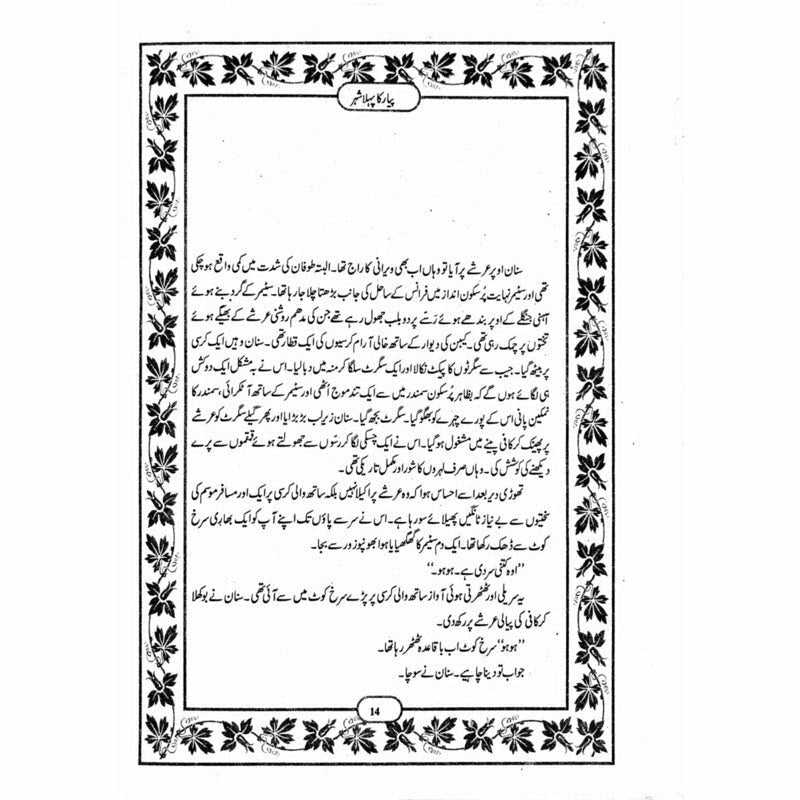 پیار کا پہلا شہر
سنان اوپر عرشے پر آیا تو وہاں اب بھی ویرانی کا راج تھا۔ البتہ طوفان کی شدت میں کمی واقع ہو چکی
تھی اور سٹیمر نہایت پُرسکون انداز میں فرانس کے ساحل کی جانب بڑھتا چلا جا رہا تھا۔ سٹیمر کے گرد بنے ہوئے
آہنی جنگلے کے اوپر بندھے ہوئے رَسّے پر دو بلب جھول رہے تھے جن کی مدھم روشنی عرشے کے بھیگے ہوئے
تختوں پر چمک رہی تھی۔ کیبن کی دیوار کے ساتھ خالی آرام کرسیوں کی ایک قطار تھی۔ سنان وہیں ایک کرسی
پر بیٹھ گیا۔ جیب سے سگرٹوں کا پیکٹ نکالا اور ایک سگرٹ سلگا کر منہ میں دبا لیا۔ اس نے بہ مشکل ایک دو کش
ہی لگائے ہوں گے کہ بظاہر پُرسکون سمندر میں سے ایک تند موج اُٹھی اور سٹیمر کے ساتھ آ ٹکرائی، سمندر کا
نمکین پانی اس کے پورے چہرے کو بھگو گیا۔ سگرٹ بجھ گیا۔ سنان زیرلب بڑبڑایا اور پھر گیلے سگرٹ کو عرشے
پر پھینک کر کافی پینے میں مشغول ہو گیا۔ اس نے ایک چسکی لگا کر رسّوں سے جھولتے ہوئے قمقموں سے پرے
دیکھنے کی کوشش کی۔ وہاں صرف لہروں کا شور اور مکمل تاریکی تھی۔
تھوڑی دیر بعد اسے احساس ہوا کہ وہ عرشے پر اکیلا نہیں بلکہ ساتھ والی کرسی پر ایک اور مسافر موسم کی
سختیوں سے بے نیاز ٹانگیں پھیلائے سو رہا ہے۔ اس نے سر سے پاؤں تک اپنے آپ کو ایک بھاری سرخ
کوٹ سے ڈھک رکھا تھا۔ ایک دم سٹیمر کا گھگھیایا ہوا بھونپو زور سے بجا۔
”اوہ کتنی سردی ہے۔ ہو ہو۔“
یہ سریلی اور ٹھٹھرتی ہوئی آواز ساتھ والی کرسی پر پڑے سرخ کوٹ میں سے آئی تھی۔ سنان نے بوکھلا
کر کافی کی پیالی عرشے پر رکھ دی۔
”ہو ہو“ سرخ کوٹ اب باقاعدہ ٹھٹھر رہا تھا۔
جواب تو دینا چاہیے۔ سنان نے سوچا۔
14